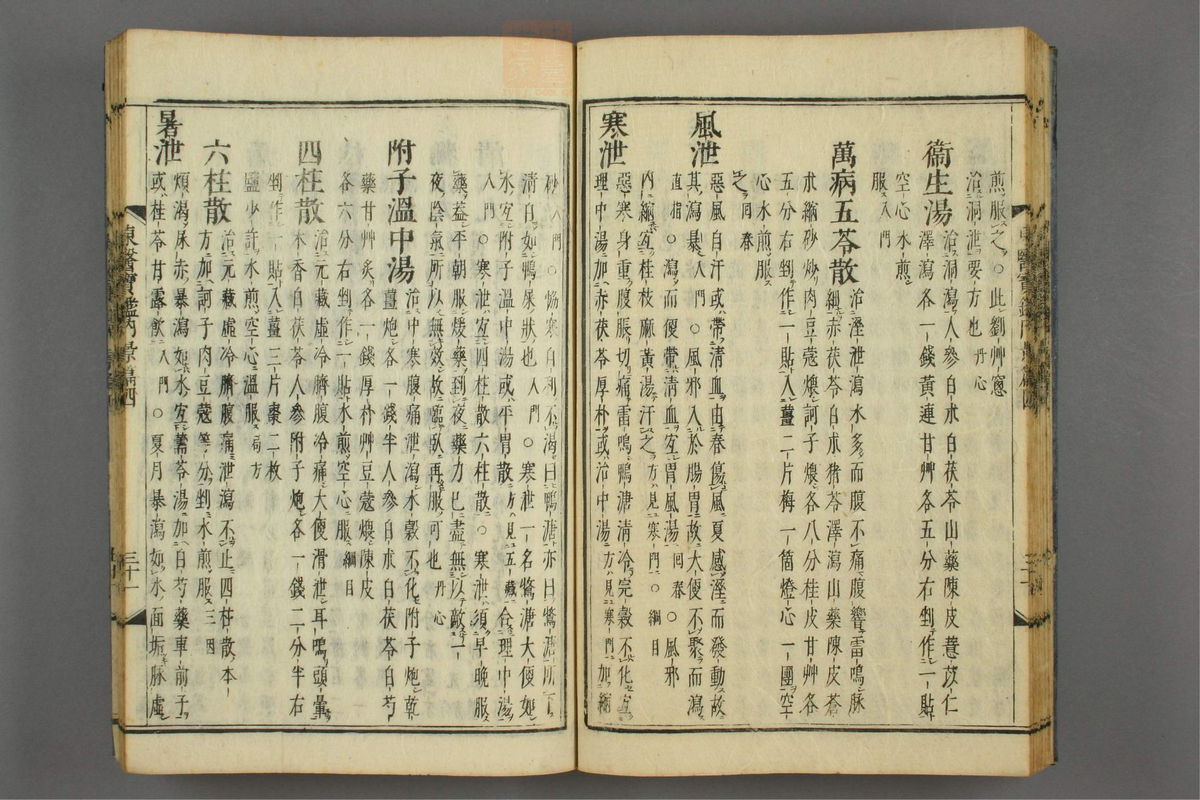 煎服之○此劉艸窓
治洞泄要方也丹心
衞生湯 治洞瀉人參白朮白茯苓山藥陳皮薏苡仁
澤瀉各一錢黃連甘艸各五分右剉作一貼
空心水煎
服入門
萬病五苓散 治溼泄瀉水多而腹不痛腹響雷鳴脉
細赤茯苓白朮猪苓澤瀉山藥陳皮蒼
朮縮砂炒肉豆蔻煨訶子煨各八分桂皮甘艸各
五分右剉作一貼入薑二片梅一箇燈心一團空
心水煎服
之回春
風泄 惡風自汗或帶淸血由春傷風夏感溼而發動故
其瀉暴入門○風邪入於腸胃故大便不聚而瀉
直指○瀉而便帶淸血宜胃風湯回春○風邪
內縮宜桂枝麻黃湯汗之方見寒門○綱目
寒泄 惡寒身重腹脹切痛雷鳴鴨溏淸冷完穀不化宜
理中湯加赤茯苓厚朴或治中湯方見寒門加縮
砂入門○惱寒自利不渴曰鴨溏亦曰鶩溏所下
淸白如鴨屎狀也入門○寒泄一名鶩溏大便如
水宜附子溫中湯或平胃散方見五藏合理中湯
入門○寒泄宜四柱散六柱散○寒泄須早晚服
藥益平朝服煖藥到夜藥力已盡無以敵一
夜陰氣所以無效故臨臥再服可也丹心
附子溫中湯 治中寒腹痛泄瀉水穀不化附子炮乾
薑炮各一錢半人參白朮白茯苓白芍
藥甘艸炙各一錢厚朴艸豆蔻煨陳皮
各六分右剉作一貼水煎空心服綱目
四柱散 治元藏虛冷臍腹冷痛大便滑泄耳鳴頭暈
木香白茯苓人參附子炮各一錢二分半右
剉作一貼入薑三片棗二枚
鹽少許水煎空心溫服局方
六柱散 治元藏虛冷臍腹痛泄瀉不止四柱散本
方加訶子肉豆蔻等分剉水煎服三因
暑泄 煩渴尿赤暴瀉如水宜薷苓湯加白芍藥車前子
或桂苓甘露飮入門○夏月暴瀉如水面垢脉虛
東醫寶鑑內景篇四
三十一